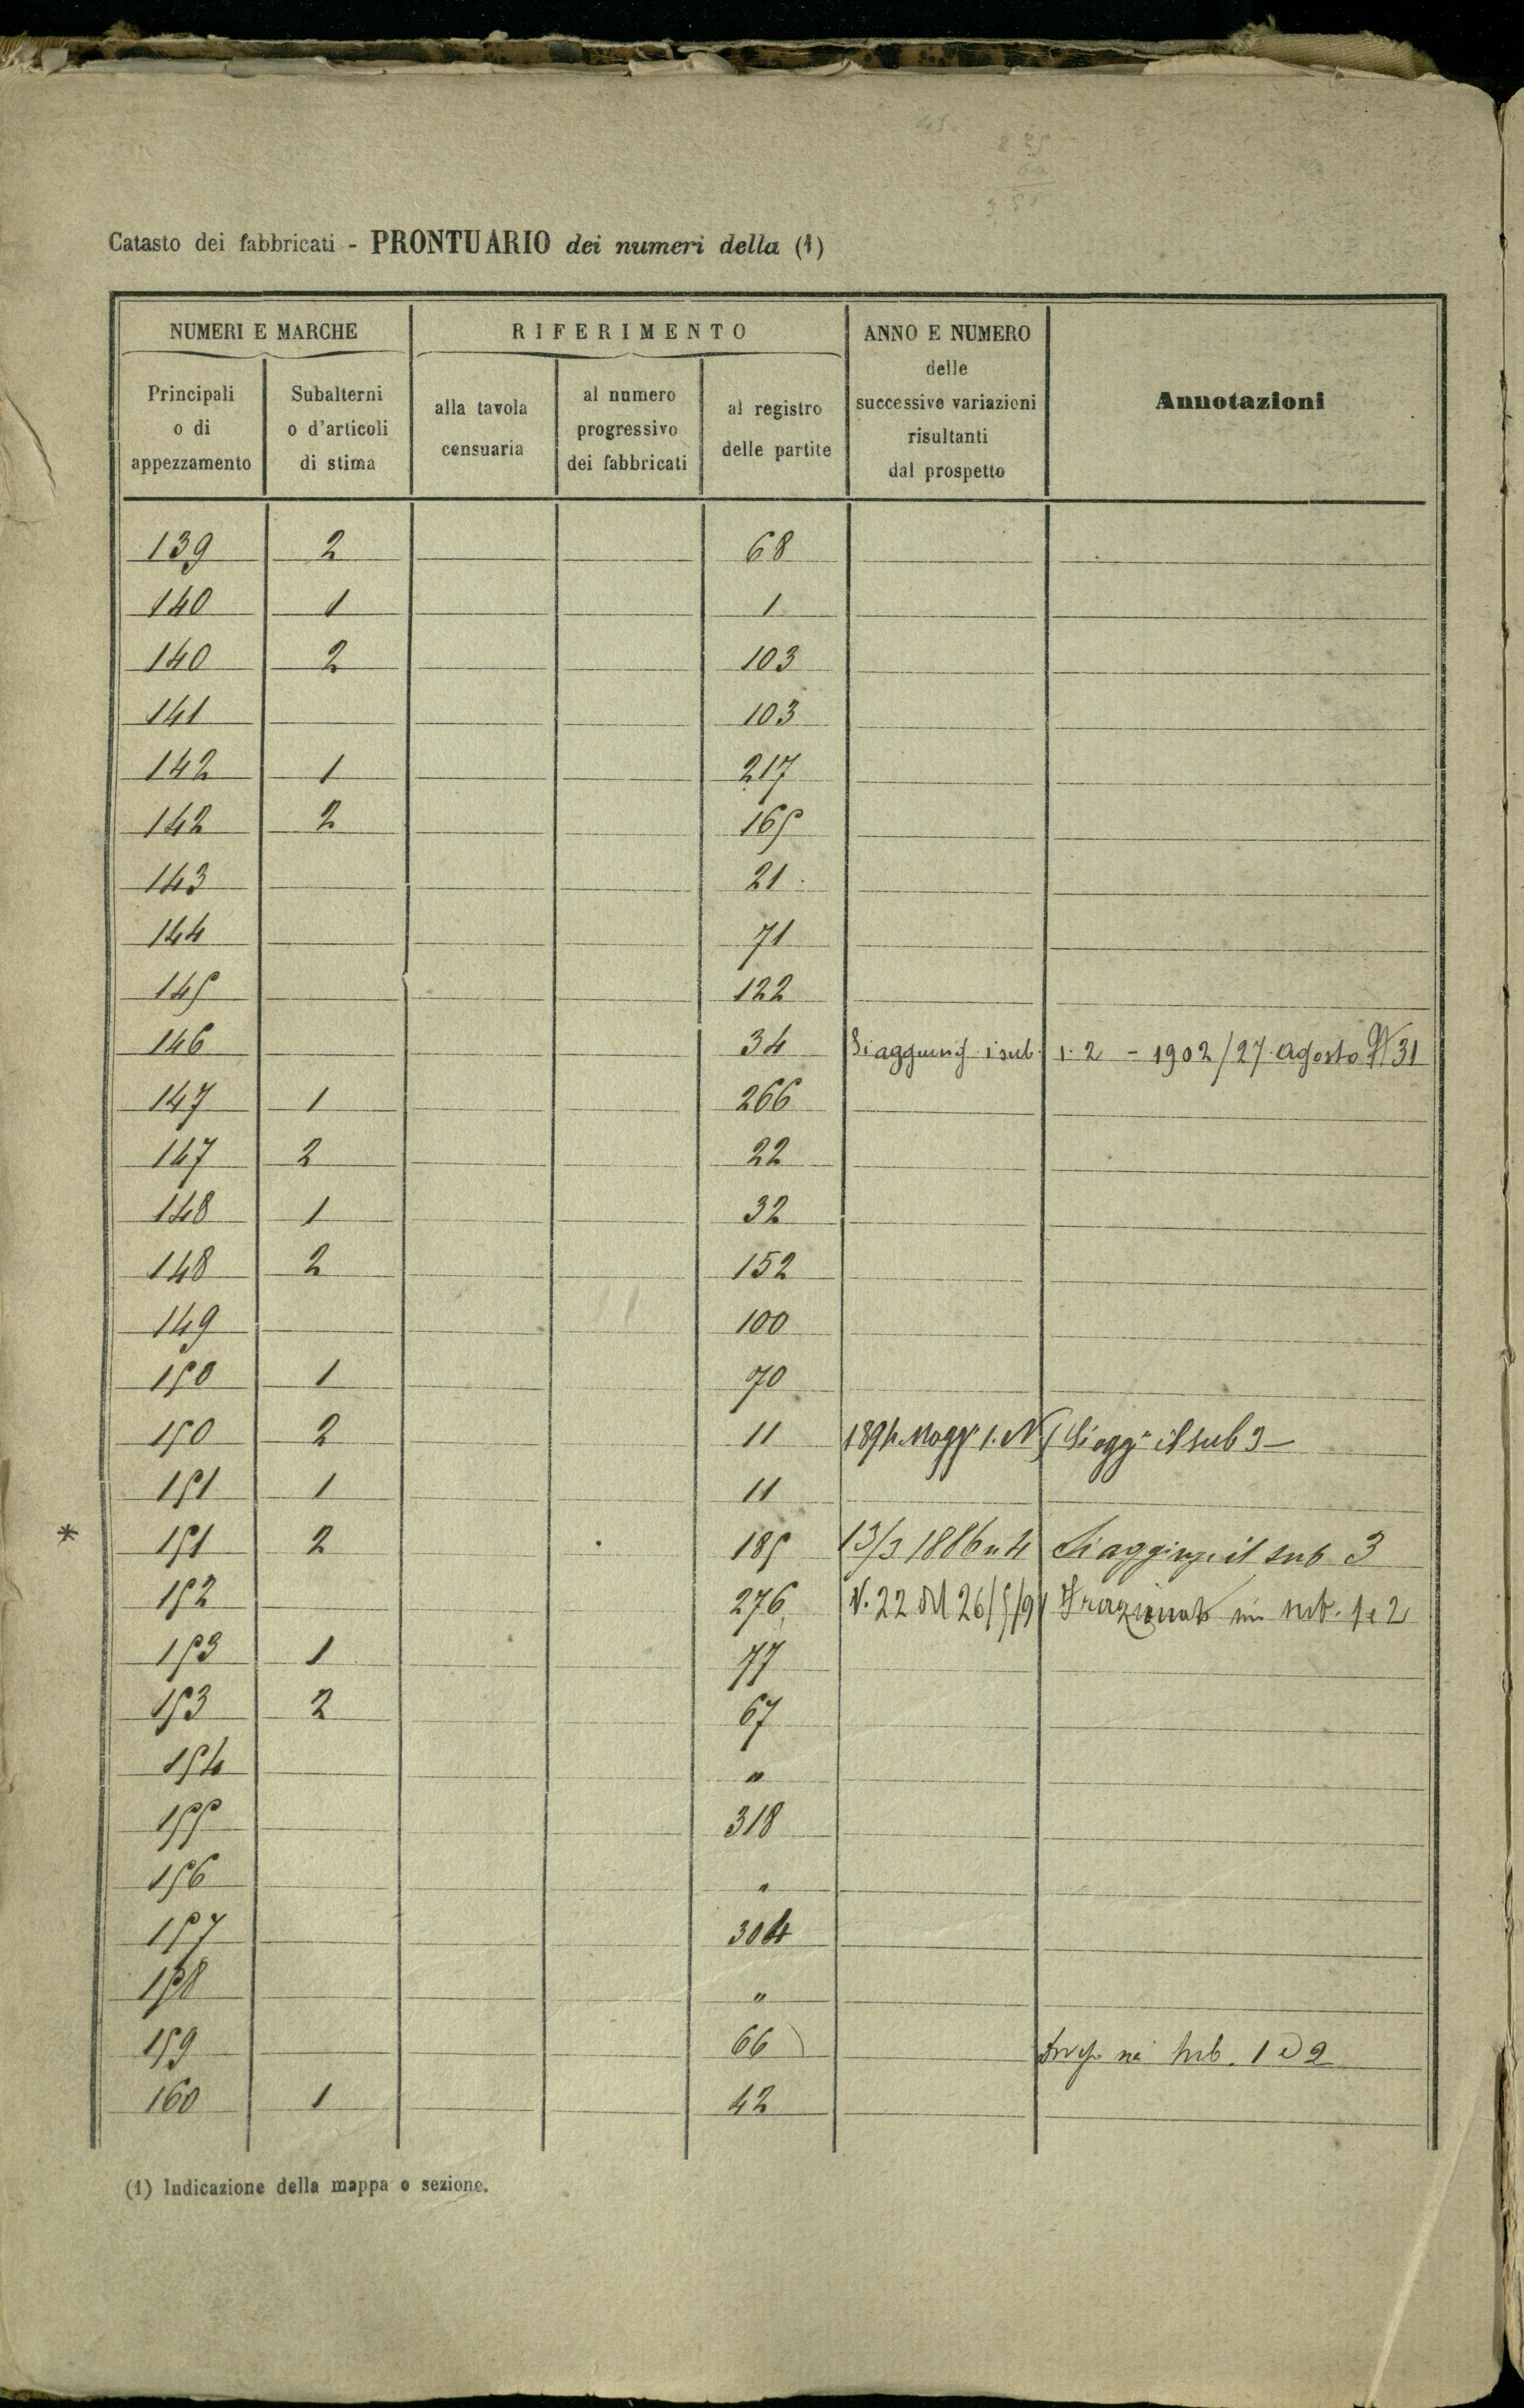 Catasto dei fabbricati - PRONTUARIO dei numeri della (1)
NUMERI E MARCHE
RIFERIMENTO
ANNO E NUMERO
delle
successive variazioni
risultanti
dal prospetto
Annotazioni
Principali
o di
appezzamento
Subalterni
o d'articoli
di stima
alla tavola
censuaria
al numero
progressivo
dei fabbricati
al registro
delle partite
139 2 68
140 1 1
140 2 103
141 103
142 1 217
142 2 165
143 21
144 71
145 122
146 34 Si i sub. 1. 2 - 1902/27. Agosto N 31
147 1 266
147 2 22
148 1 32
148 2 152
149 100
150 1 70
150 2 11 Si agg. il sub 3
151 1 11
* 151 2 185 13/3 1886 n 4 Si aggiunge il sub 3
152 276 N. 22 del 26/5/91 Frazionato in sub. 1 e 2
153 1 77
153 2 67
154 "
155 318
156 "
157 304
158 "
159 66 sub. 1 e 2
160 1 42
(1) Indicazione della mappa o sezione.